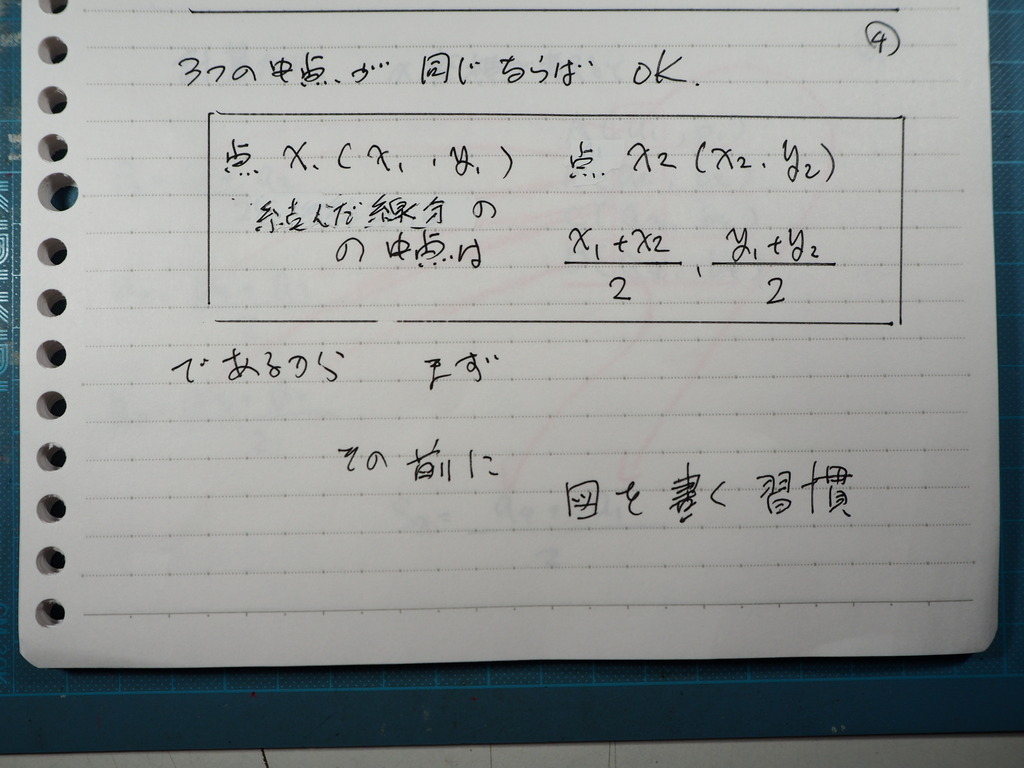 ④
3つの中点が 同じならば OK.
点 x₁ (x₁, y₁) 点 x2 (x2, y₂)
結んだ線分の
の中点は x₁+x2/2, y₁+y₂/2
であるから まず
その前に
図を書く習慣